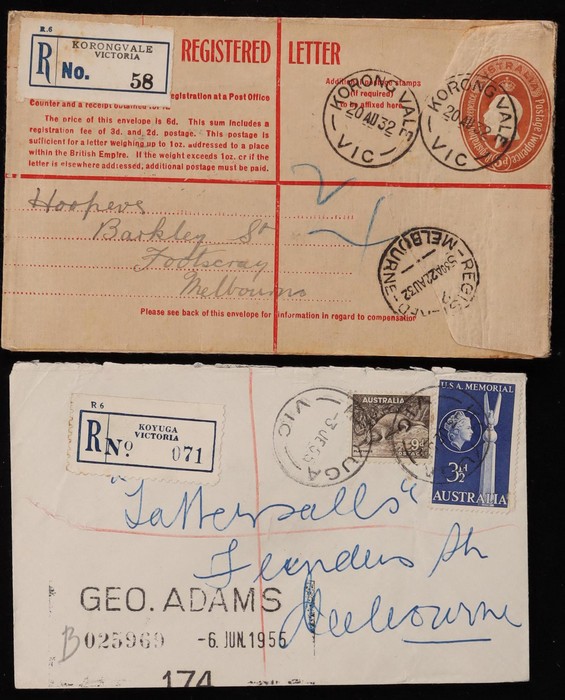 R.6
KORONGVALE
VICTORIA
R No. 58
REGISTERED LETTER
Additional postage stamps
(if required)
to be affixed here.
KORONG VALE
20 AU 32
VIC
KORONG VALE
20 AU 32
VIC
AUSTRALIA
Postage Twopence
egistration at a Post Office
Counter and a receipt obtained for it.
The price of this envelope is 6d. This sum includes a
registration fee of 3d. and 2d. postage. This postage is
sufficient for a letter weighing up to 1oz. addressed to a place
within the British Empire. If the weight exceeds 1oz. or if the
letter is elsewhere addressed, additional postage must be paid.
Hoopers
Barkley St
Footscray
Melbourne
REGISTERED
MELBOURNE
22AU32
Please see back of this envelope for information in regard to compensation
R 6
KOYUGA
VICTORIA
R No 071
KOYUGA
3 JE 55
VIC
AUSTRALIA
9d
POSTAGE
U.S.A. MEMORIAL
3½d
AUSTRALIA
"Tattersalls"
Flinders St
Melbourne
GEO. ADAMS
B025969 -6. JUN. 1955
174